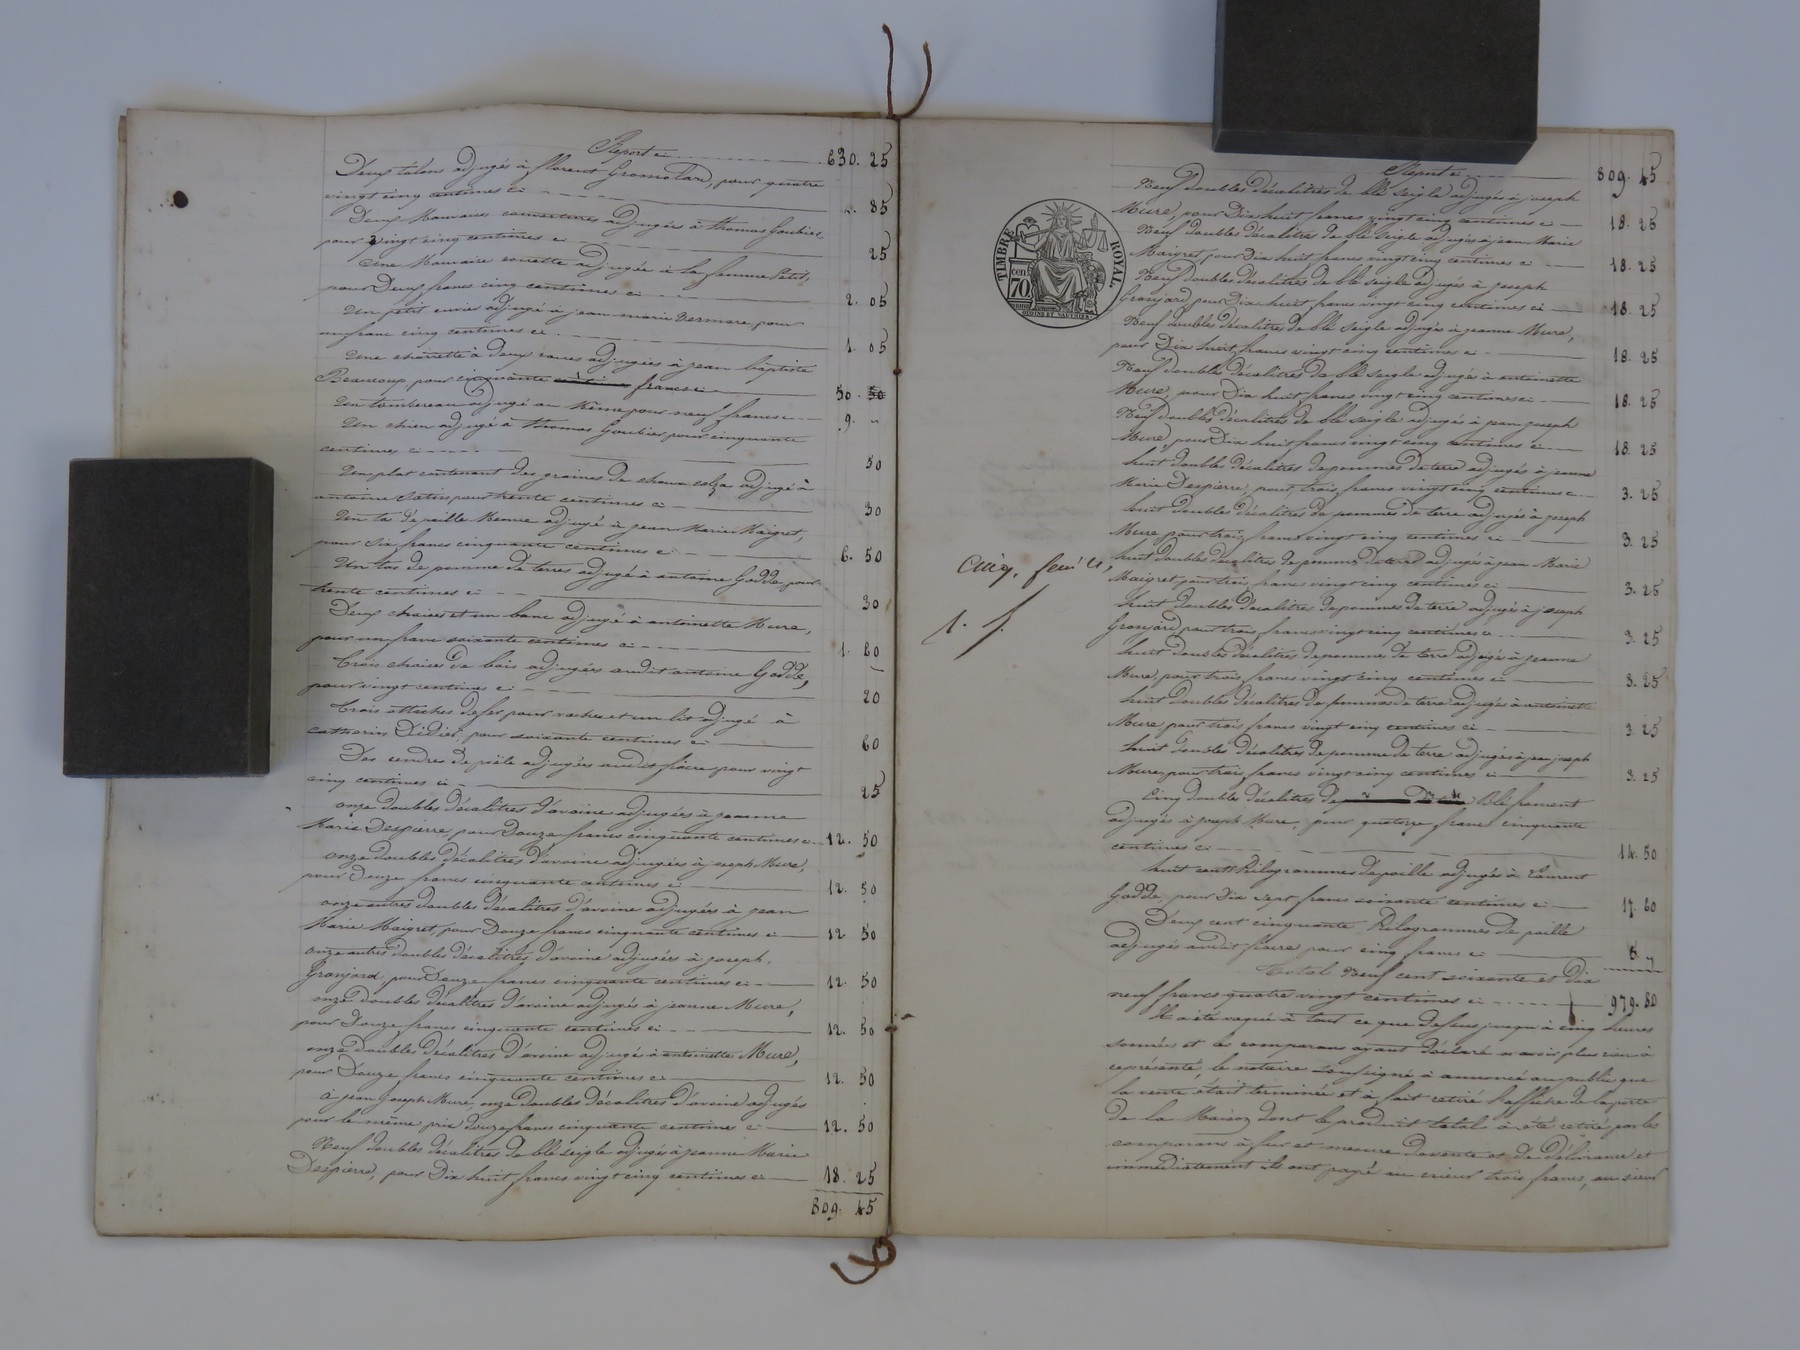 Report ci 630. 25
Deux tâlons adjugés à florent Gromolard, pour quatre
vingt cinq centimes ci 85
Deux Mauvaises couvertures adjugées à thomas Goubier
pour vingt cinq centimes ci 25
Une Mauvaise couette adjugée à la femme Petit,
pour Deux francs cinq centimes ci 2. 05
Un petit cuvier adjugé à jean marie Dermare, pour
un franc cinq centimes ci 1. 05
Une charrette à Deux roues adjugées à jean baptiste
Beaucoup pour cinquante francs ci 50.
Un tombereau adjugé au Même pour neuf francs ci 9. "
Un chien adjugé à thomas Goubier pour cinquante
centimes ci 50
Un plat contenant des graines de choux colza adjugé à
antoine pour trente centimes ci 30
Un tas de paille Menue adjugé à jean Marie Maigret,
pour six francs cinquante centimes ci 6. 50
Un tas de pomme de terres adjugé à antoine Godde, pour
trente centimes ci 30
Deux chaises et un banc adjugé à antoinette Mure,
pour un franc soixante centimes ci 1. 60
Trois chaises de bois adjugées audit antoine Godde,
pour vingt centimes ci 20
Trois attaches de fer pour vaches et un lit adjugé à
catherin Didier, pour soixante centimes ci 60
Des cendres de poële adjugées audit fiacre pour vingt
cinq centimes ci 25
onze doubles décalitres d'avoine adjugées à jeanne
Marie Despierre pour Douze francs cinquante centimes ci 12. 50
onze doubles décalitres d'avoine adjugées à joseph Mure,
pour Douze francs cinquante centimes ci 12. 50
onze autres doubles décalitres d'avoine adjugées à jean
Marie Maigret, pour Douze francs cinquante centimes ci 12 50
onze autres doubles décalitres d'avoine adjugées à joseph
Granjard, pour Douze francs cinquante centimes ci 12. 50
onze doubles décalitres d'avoine adjugés à jeanne Mure,
pour Douze francs cinquante centimes ci 12. 50
onze doubles décalitres d'avoine adjugés à antoinette Mure,
pour Douze francs cinquante centimes ci 12. 50
à jean joseph Mure, onze doubles décalitres d'avoine adjugés
pour le même prix douze francs cinquante centimes ci 12. 50
Neuf doubles décalitres de blé seigle adjugés à jeanne Marie
Despierre, pour Dix huit francs vingt cinq centimes ci 18. 25
809. 45
Report ci 809. 45
Neuf doubles décalitres de blé seigle adjugés à joseph
Mure, pour Dix huit francs vingt cinq centimes ci 18. 25
Neuf doubles décalitres de blé seigle adjugés à jean Marie
Maigret, pour Dix huit francs vingt cinq centimes ci 18. 25
Neuf doubles décalitres de blé seigle adjugés à joseph
Granjard, pour Dix huit francs vingt cinq centimes ci 18. 25
Neuf doubles décalitres de blé seigle adjugés à jeanne Mure,
pour Dix huit francs vingt cinq centimes ci 18. 25
Neuf doubles décalitres de blé seigle adjugés à antoinette
Mure, pour Dix huit francs vingt cinq centimes ci 18. 25
Neuf doubles décalitres de blé seigle adjugés à jean joseph
Mure, pour Dix huit francs vingt cinq centimes ci 18. 25
huit doubles décalitres de pommes de terre adjugés à jeanne
Marie Despierre, pour trois francs vingt cinq centimes ci 3. 25
huit doubles décalitres de pommes de terre adjugés à joseph
Mure pour trois francs vingt cinq centimes ci 3. 25
huit doubles décalitres de pommes de terre adjugés à jean Marie
Maigret pour trois francs vingt cinq centimes ci 3. 25
huit doubles décalitres de pommes de terre adjugés à joseph
Granjard pour trois francs vingt cinq centimes ci 3. 25
huit double décalitres de pommes de terre adjugés à jeanne
Mure, pour trois francs vingt cinq centimes ci 3. 25
huit doubles décalitres de pommes de terre adjugés à antoinette
Mure pour trois francs vingt cinq centimes ci 3. 25
huit doubles décalitres de pomme de terre adjugés à jean joseph
Mure, pour trois francs vingt cinq centimes ci 3. 25
Cinq doubles décalitres de Blé froment
adjugés à joseph Mure, pour quatorze francs cinquante
centimes ci 14. 50
huit cents Kilogrammes de paille adjugés à Laurent
Godde pour Dix sept francs soixante centimes ci 17. 60
Deux cent cinquante Kilogrammes de paille
adjugés audit fiacre pour cinq francs ci
Total Neuf cent soixante et Dix
neuf francs quatre vingt centimes ci 979. 80
Il a été vaqué à tout ce que dessus jusqu'à cinq heures
sonnées et les comparans ayant déclaré n'avoir plus rien à
représenté, le notaire soussigné à annoncé au public que
la vente était terminée et à fait retiré l'affiche de la porte
De la Maison dont le produit total à été retiré par les
comparans à fur et mesure de vente et de Délivrance et
immédiatement ils ont payé au crieur trois francs, au sieur
TIMBRE ROYAL.
cen
70
Cinq. feuillet,